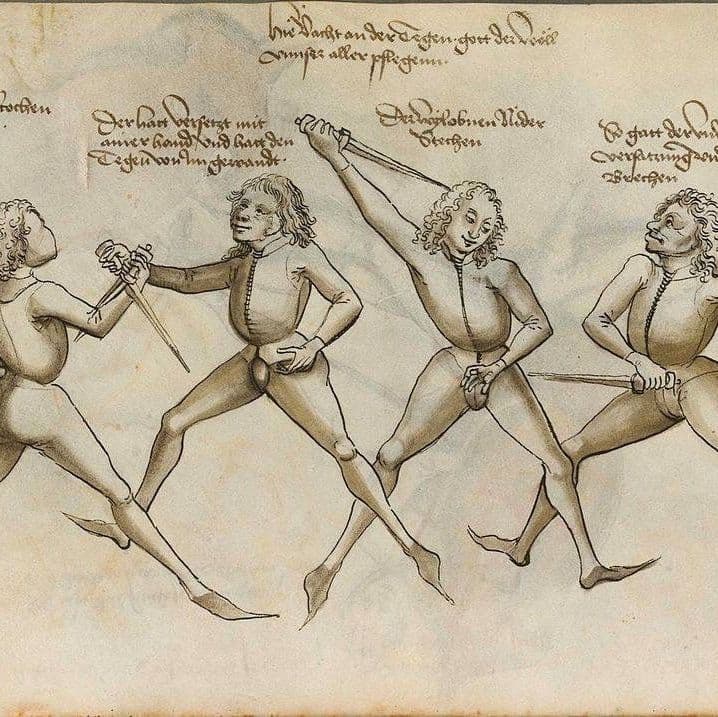 Hie vacht an der Tegen gott der wöll
vnnser aller pflegenn
stochen
Der hatt versetzt mit
ainer hand vnd hatt den
Tegen von im gewandt
Der wyl obnen Nider
Stechen
So gatt der
versatzung
Brechen